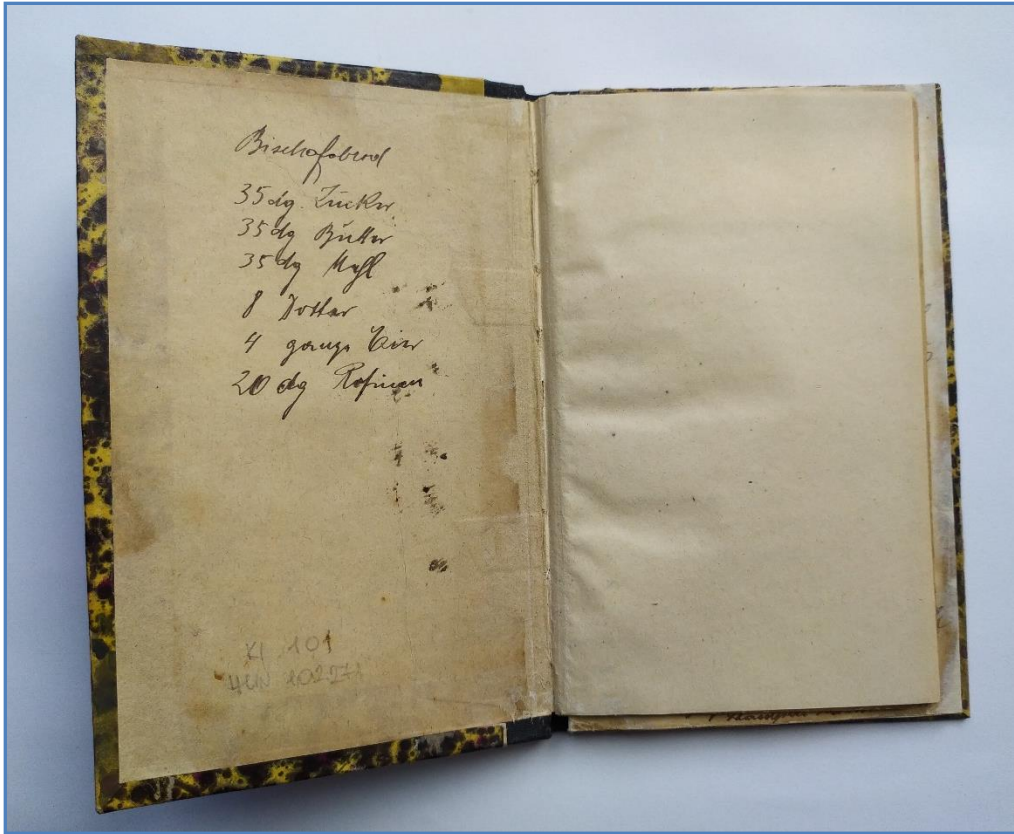 Bischofsbrod
35 dg Zucker
35 dg Butter
35 dg Mehl
8 Dotter
4 ganze Eier
20 dg Rosinen
XI 101